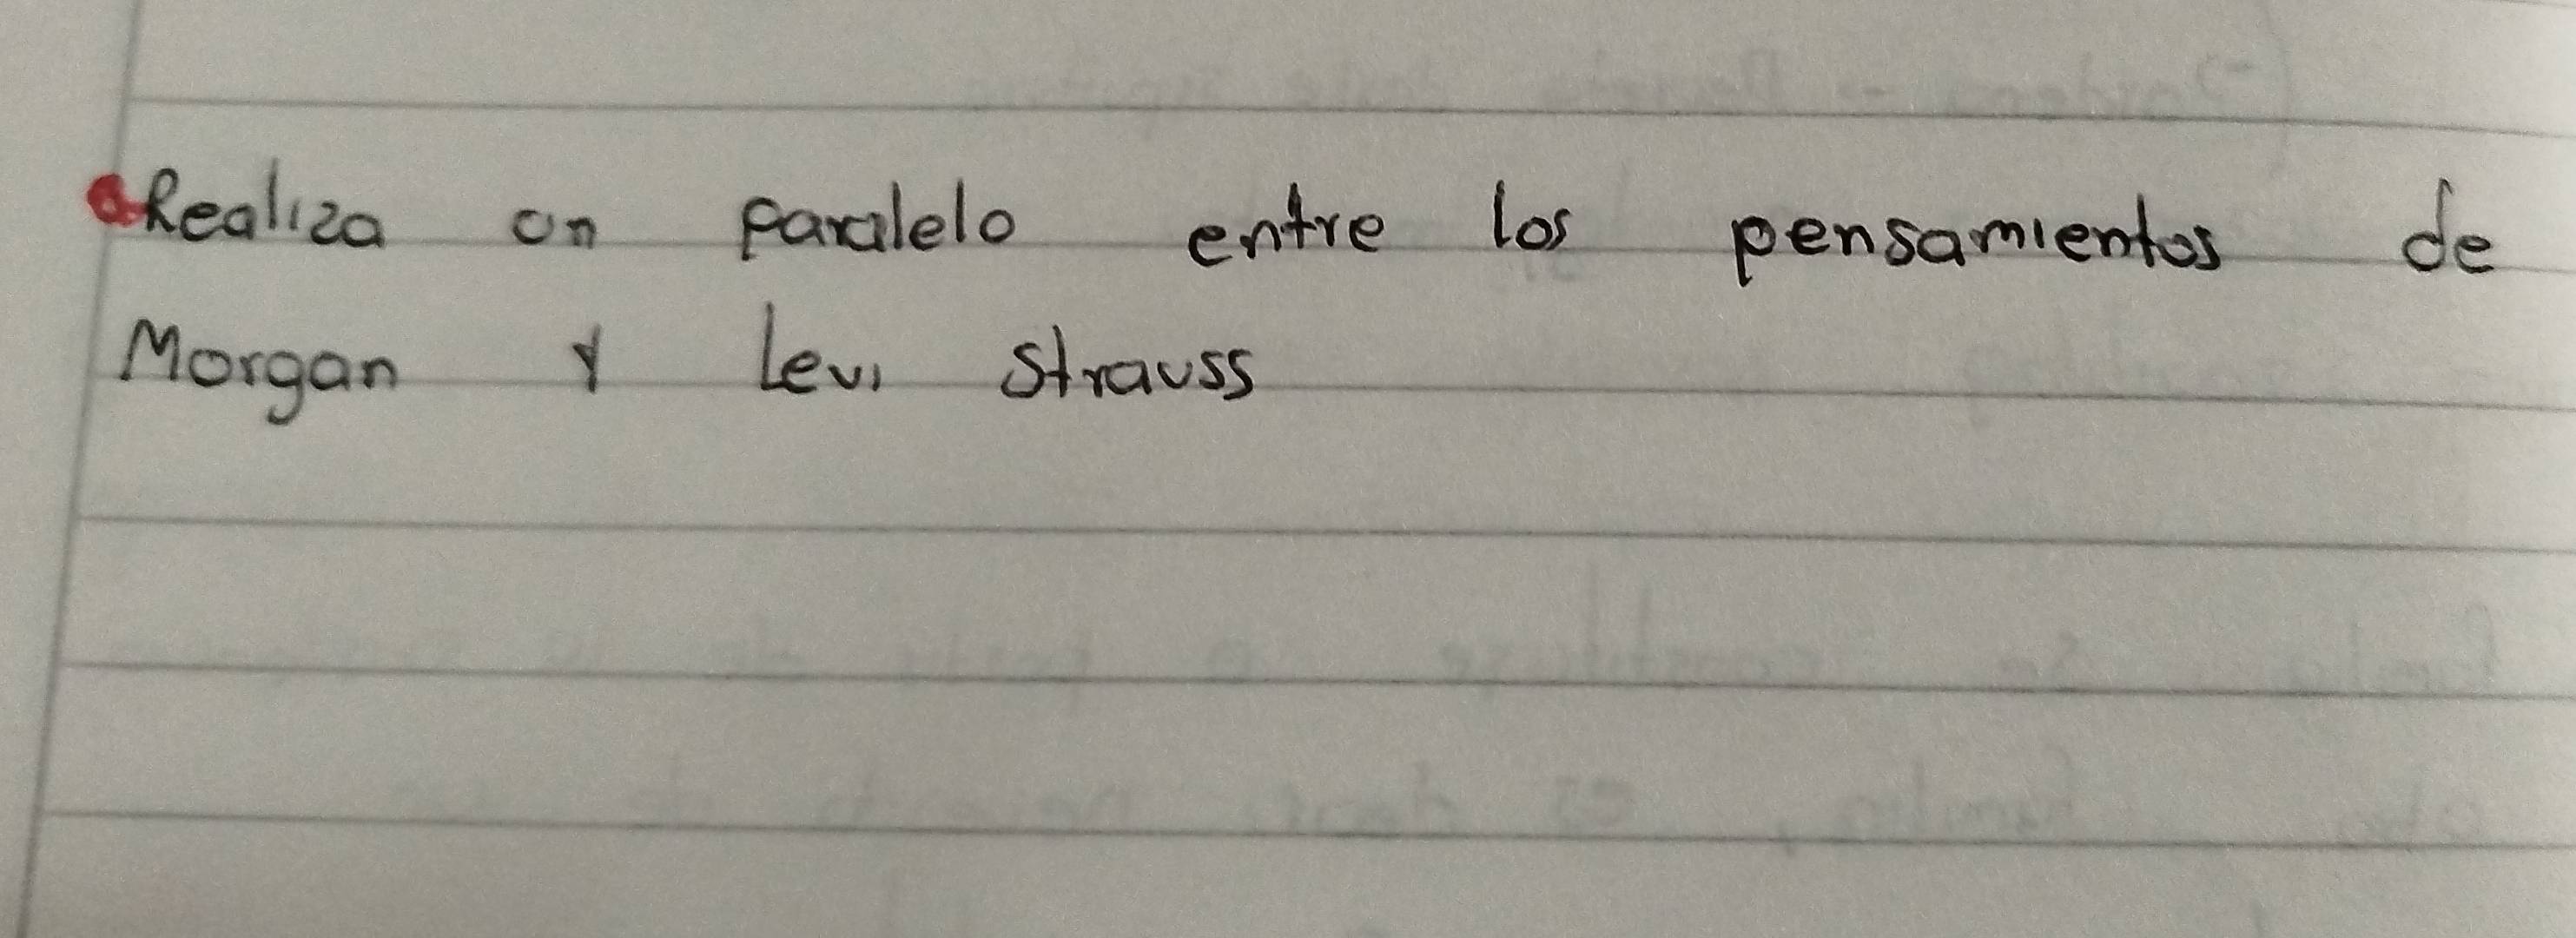 Realiza un paralelo entre los pensamientos de
Morgan y Levi Strauss